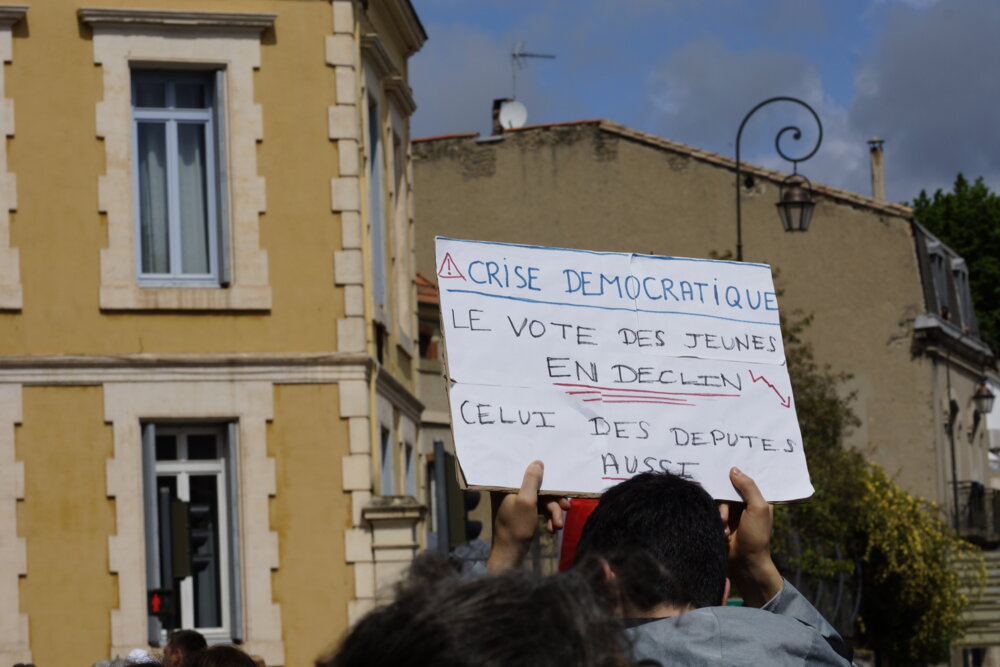 CRISE DEMOCRATIQUE
LE VOTE DES JEUNES
EN DECLIN
CELUI DES DEPUTES
AUSSI